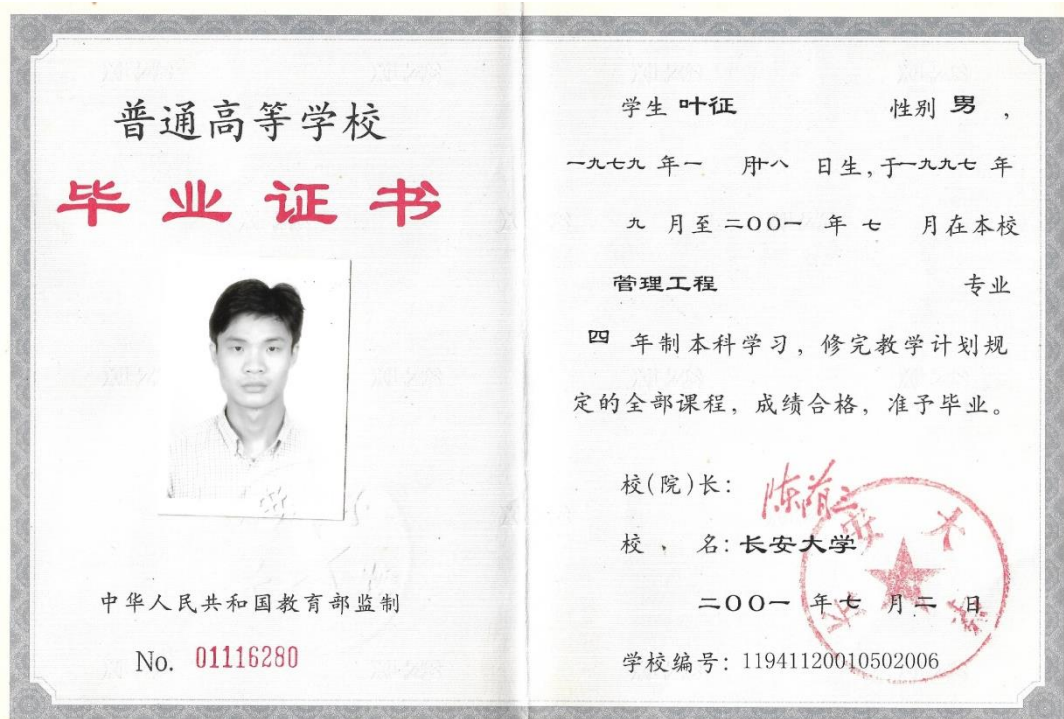 普通高等学校
毕业证书
中华人民共和国教育部监制
No. 01116280
学生 叶征 性别 男，
一九七九 年 一 月 十八 日生，于 一九九七 年
九 月至 二〇〇一 年 七 月在本校
管理工程 专业
四 年制本科学习，修完教学计划规
定的全部课程，成绩合格，准予毕业。
校(院)长：
校、名：长安大学
二〇〇一 年 七 月 二 日
学校编号：11941120010502006
长安大学